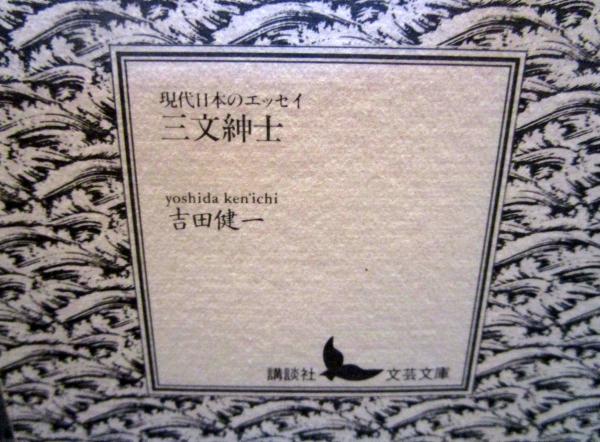 現代日本のエッセイ
三文紳士
yoshida ken'ichi
吉田健一
講談社 文芸文庫